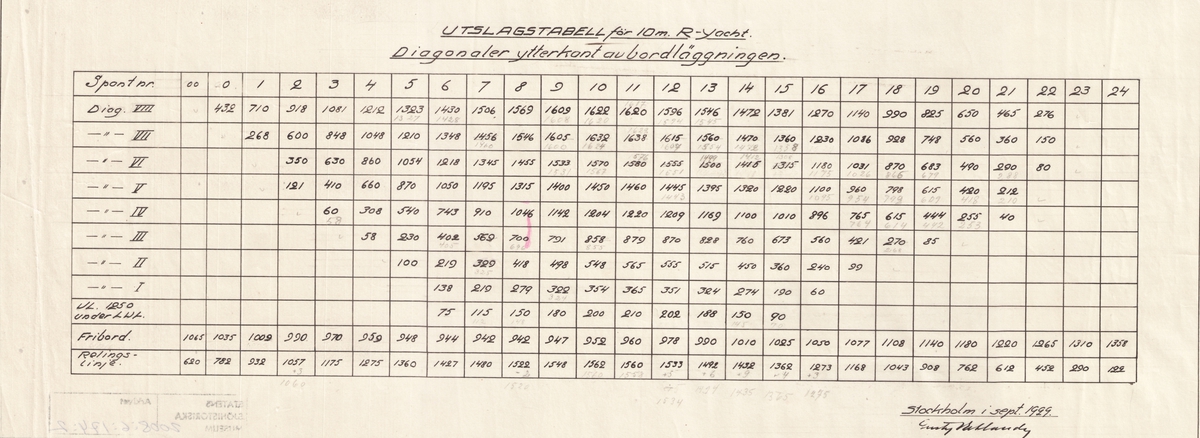 UTSLAGSTABELL för 10 m. R-Yacht.
Diagonaler ytterkant av bordläggningen.
Spant nr. 00 0 1 2 3 4 5 6 7 8 9 10 11 12 13 14 15 16 17 18 19 20 21 22 23 24
Diag. VIII 432 710 918 1081 1212 1323 1430 1506 1569 1609 1622 1620 1596 1546 1472 1381 1270 1140 990 825 650 465 276
—"— VII 268 600 848 1048 1210 1348 1456 1546 1605 1632 1638 1615 1560 1470 1360 1230 1086 928 748 560 360 150
—"— VI 350 630 860 1054 1218 1345 1455 1533 1570 1580 1555 1500 1415 1315 1180 1031 870 683 490 290 80
—"— V 121 410 660 870 1050 1195 1315 1400 1450 1460 1445 1395 1320 1220 1100 960 798 615 420 212
—"— IV 60 308 540 743 910 1046 1142 1204 1220 1209 1169 1100 1010 896 765 615 444 255 40
—"— III 58 230 402 569 700 791 858 879 870 828 760 673 560 421 270 85
—"— II 100 219 329 418 498 548 565 555 515 450 360 240 99
—"— I 138 219 279 322 354 365 351 324 274 190 60
VL. 1250
under LWL. 75 115 150 180 200 210 202 188 150 90
Fribord. 1065 1035 1009 990 970 959 948 944 942 942 947 952 960 978 990 1010 1025 1050 1077 1108 1140 1180 1220 1265 1310 1358
Relings-
linje. 620 782 932 1057 1175 1275 1360 1427 1480 1522 1548 1562 1560 1533 1492 1432 1362 1273 1168 1043 908 762 612 452 290 122
Stockholm i sept. 1929.
STATENS
SJÖHISTORISKA
MUSEUM
Arkivet